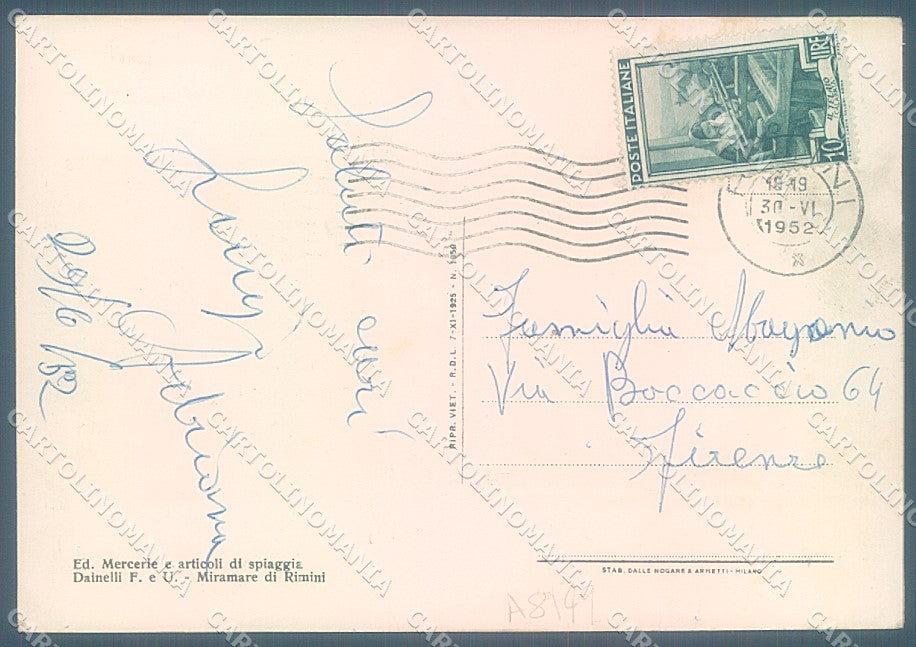 Saluti cari
Luigi
Adriana
29/6/52
Ed. Mercerie e articoli di spiaggia
Dainelli F. e U. - Miramare di Rimini
RIPR. VIET. - R.D.L. 7-XI-1925 - N. 1950
POSTE ITALIANE
LIRE
10
18-19
30-VI
1952
Famiglia
Via Boccaccio 64
Firenze
STAB. DALLE NOGARE & ARMETTI - MILANO
CARTOLINOMANIA